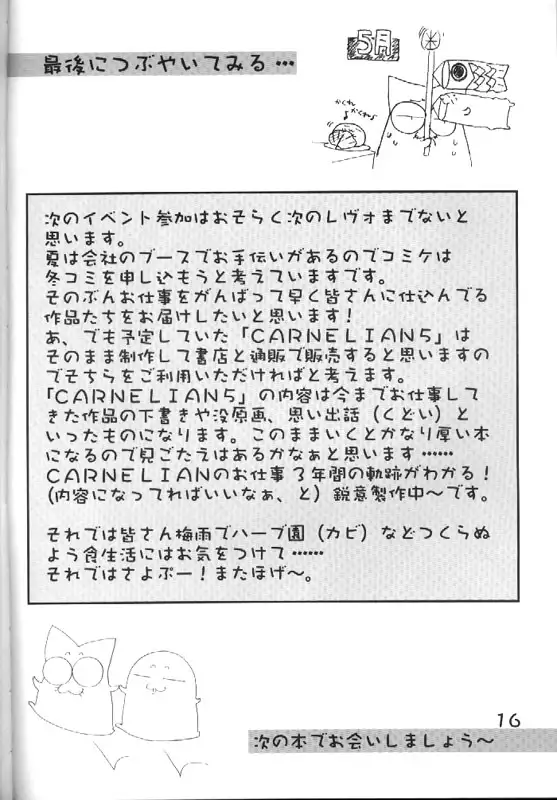 最後につぶやいてみる…
5月
かくれ
かくれ
次のイベント参加はおそらく次のレヴォまでないと
思います。
夏は会社のブースでお手伝いがあるのでコミケは
冬コミを申し込もうと考えていますです。
そのぶんお仕事をがんばって早く皆さんに仕込んでる
作品たちをお届けしたいと思います！
あ、でも予定していた「CARNELIAN5」は
そのまま制作して書店と通販で販売すると思いますの
でそちらをご利用いただければと考えます。
「CARNELIAN5」の内容は今までお仕事して
きた作品の下書きや没原画、思い出話（くどい）と
いったものになります。このままいくとかなり厚い本
になるので見ごたえはあるかなぁと思います……
CARNELIANのお仕事3年間の軌跡がわかる！
(内容になってればいいなぁ、と）鋭意製作中～です。
それでは皆さん梅雨でハーブ園（カビ）などつくらぬ
よう食生活にはお気をつけて……
それではさよぷー！またほげ～。
16
次の本でお会いしましょう～